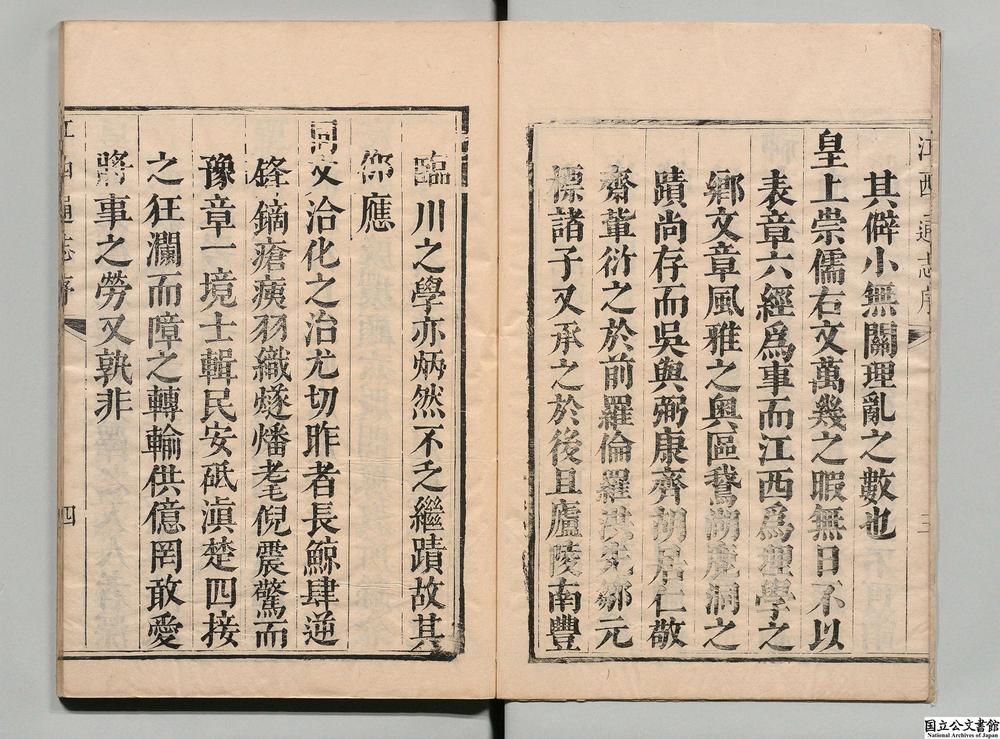 江西通志序
三
其僻小無關理亂之數也
皇上崇儒右文萬幾之暇無日不以
表章六經爲事而江西爲理學之
鄉文章風雅之奧區鵞湖鹿洞之
蹟尚存而吳與弼康齊湖居仁敬
齋董衍之於前羅倫羅洪先鄒元
標諸子又承之於後且廬陵南豐
臨川之學亦炳然不乏繼蹟故其
仰應
同文洽化之治尤切昨者長鯨肆逆
鋒鏑瘡痍羽織燧燔老毛倪震驚而
豫章一境士輯民安砥滇楚四接
之狂瀾而障之轉輸供億罔敢愛
將事之勞又孰非
江西通志序
四
国立公文書館
National Archives of Japan